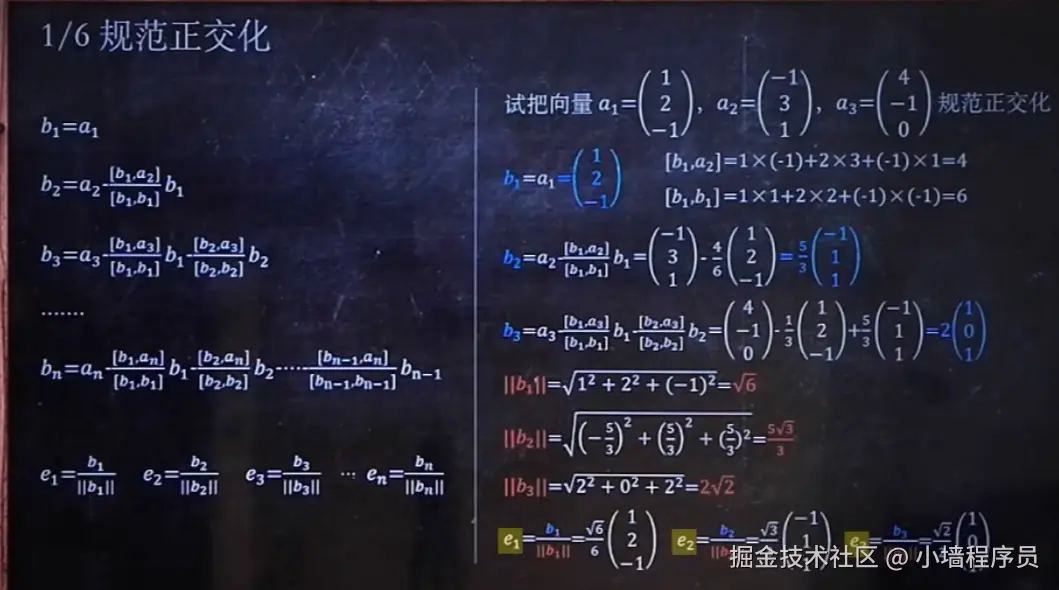 1/6 规范正交化
b₁=a₁
b₂=a₂-[b₁,a₂]/[b₁,b₁] b₁
b₃=a₃-[b₁,a₃]/[b₁,b₁] b₁-[b₂,a₃]/[b₂,b₂] b₂
.......
bₙ=aₙ-[b₁,aₙ]/[b₁,b₁] b₁-[b₂,aₙ]/[b₂,b₂] b₂-····-[bₙ₋₁,aₙ]/[bₙ₋₁,bₙ₋₁] bₙ₋₁
e₁=b₁/||b₁|| e₂=b₂/||b₂|| e₃=b₃/||b₃|| ··· eₙ=bₙ/||bₙ||
试把向量 a₁=(1 2 −1), a₂=(−1 3 1), a₃=(4 −1 0) 规范正交化
b₁=a₁=(1 2 −1) [b₁,a₂]=1×(-1)+2×3+(-1)×1=4
[b₁,b₁]=1×1+2×2+(-1)×(-1)=6
b₂=a₂-[b₁,a₂]/[b₁,b₁] b₁=(−1 3 1)-4/6(1 2 −1)=5/3(−1 1 1)
b₃=a₃-[b₁,a₃]/[b₁,b₁] b₁-[b₂,a₃]/[b₂,b₂] b₂=(4 −1 0)-1/3(1 2 −1)+5/3(−1 1 1)=2(1 0 1)
||b₁||=√(1² + 2² + (−1)²)=√6
||b₂||=√((−5/3)² + (5/3)² + (5/3)²)=5√3/3
||b₃||=√(2² + 0² + 2²)=2√2
e₁=b₁/||b₁||=√6/6(1 2 −1) e₂=b₂/||b₂||=√3(−1 1 1) e₃=b₃=√2(1 0 1)
掘金技术社区 @ 小墙程序员